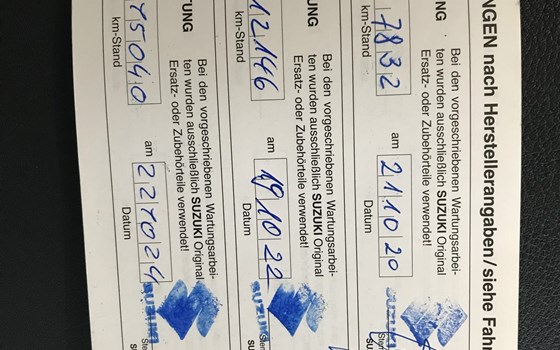 NGEN nach Herstellerangaben/siehe Fahr
NG
Bei den vorgeschriebenen Wartungsarbei-
ten wurden ausschließlich SUZUKI Original
Ersatz- oder Zubehörteile verwendet!
7832 am 211020
km-Stand Datum
UNG
Bei den vorgeschriebenen Wartungsarbei-
ten wurden ausschließlich SUZUKI Original
Ersatz- oder Zubehörteile verwendet!
12146 am 191022
km-Stand Datum
SUZUKI
TUNG
Bei den vorgeschriebenen Wartungsarbei-
ten wurden ausschließlich SUZUKI Original
Ersatz- oder Zubehörteile verwendet!
15040 am 221024
km-Stand Datum
SUZUKI